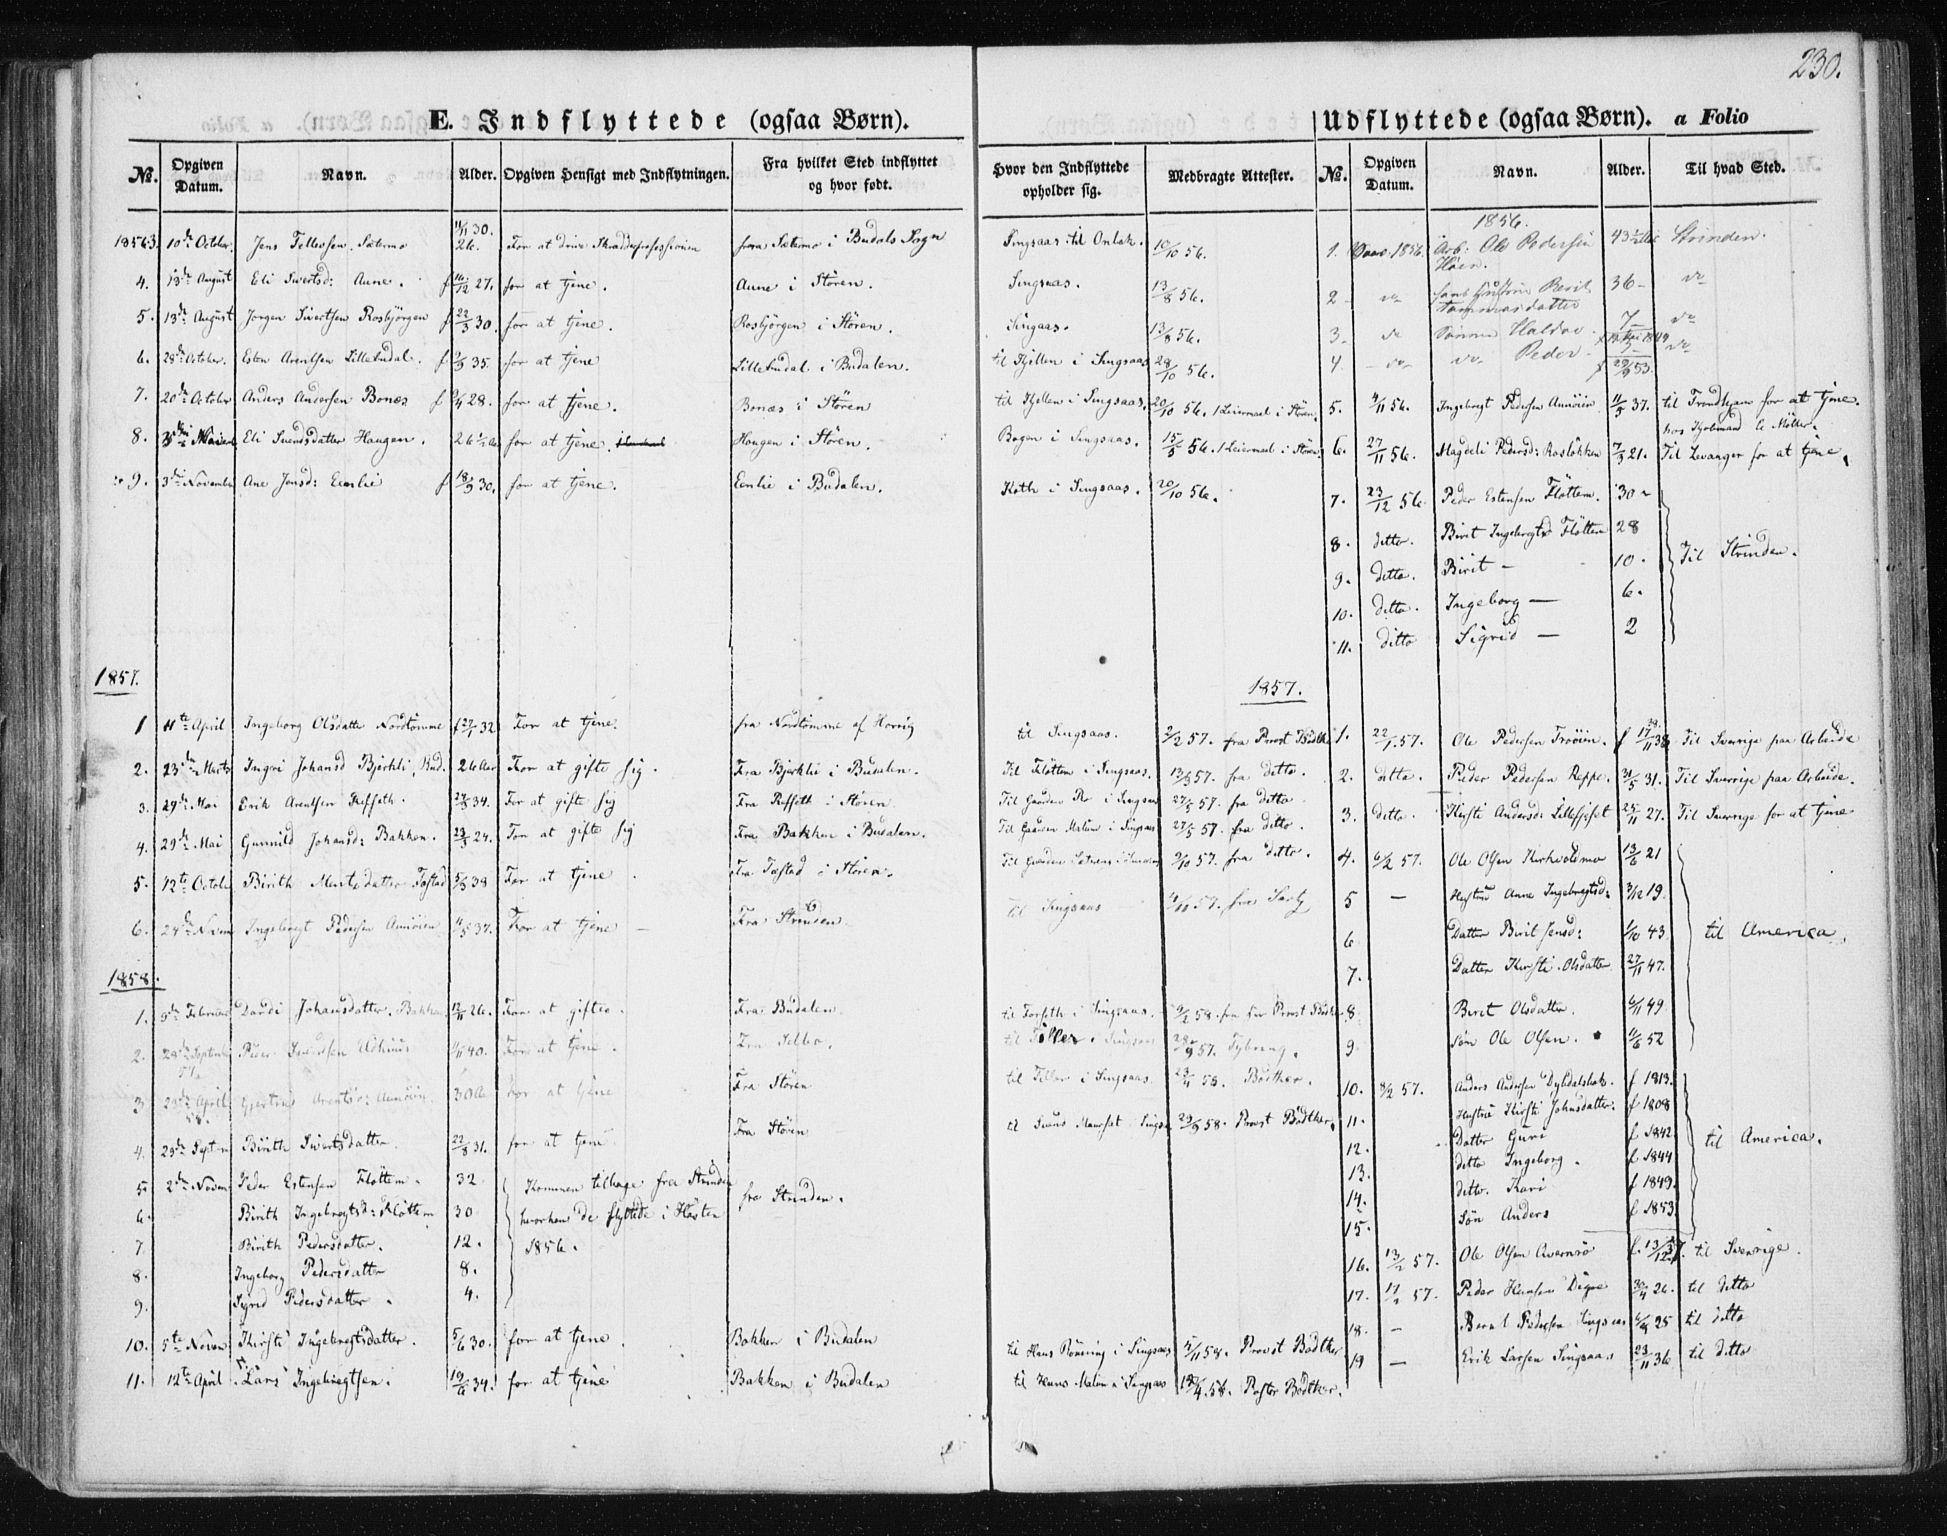 230.
E. Indflyttede (ogsaa Børn).
Udflyttede (ogsaa Børn). a Folio
No. Opgiven Datum. Navn. Alder. Opgiven Hensigt med Indflytningen. Fra hvilket Sted indflyttet og hvor født.
Hvor den Indflyttede opholder sig. Medbragte Attester. No. Opgiven Datum. Navn. Alder. Til hvad Sted.
1856 3. 10de October. Jens Tellevsen Sæterno 11/11 30. 26. For at drive Skrædderprofessionen fra Sæterno i Budals Sogn Singsaas til Onbak. 10/10 56.
4. 13de August Eli Sivertsd: Aune. f 16/12 27. for at tjene. Aune i Støren. Singsaas. 13/8 56.
5. 13de August Jørgen Sivertsen Rosbjørgen f 22/3 30. for at tjene. Rosbjørgen i Støren. Singsaas. 13/8 56.
6. 28de October. Esten Arentsen Lillebudal. 35. for at tjene Lillebudal i Budalen. til Kjillen i Singsaas 28/10 56.
7. 20de October Anders Andersen Bonæs f 28. for at tjene. Bonæs i Støren til Kjellen i Singsaas. 20/10 56. 1 Leiermaal i Støren.
8. Eli Svendsdatter Haugen. 26 1/2 for at tjene. Haugen i Støren. Bogen i Singsaas. 15/5 56. 1 Leiermaal i Støren.
9. 3die November Ane Jensd: Eenlie f 18/9 30. for at tjene. Eenlie i Budalen. Koth i Singsaas. 20/10 56.
1856.
1. 1856. Arb: Ole Pedersen Høen. 43 1/2 Strinden.
2 do hans Hustru Berit Tommasdatter 36 do
3 do Sønnen Haldor 7 do
4 do do Peder f 29/9 53. do
5. 4/11 56. Ingebregt Pedersen Aunøien 11/5 37. til Trondhjem for at tjene. hos Kjøbmand C Møller.
6. 27/11 56. Magdeli Pedersd: Rosløkken 7/3 21. Til Levanger for at tjene.
7. 23/12 56. Peder Estensen Fløttem. 30
8. ditto. Birit Ingebregtsd Fløttem 28
9. ditto. Birit — 10. Til Strinden.
10. ditto. Ingeborg — 6.
11. ditto Sigrid — 2
1857.
1 11te April Ingeborg Olsdatter Nordtømme f 27/1 32 For at tjene. fra Nordtømme af Horrig til Singsaas. 2/2 57. fra Provst Bødtker
2. 23de Marts Ingri Johansd Bjerkli, Bud. 26 Aar For at gifte sig. Fra Bjerklie i Budalen. Til Fløttem i Singsaas. 13/3 57. fra ditto.
3. 29de Mai Erik Arentsen Reffseth. 27/3 34. For at gifte sig Fra Reffseth i Støren Til Gaarden Ro i Singsaas 27/5 57. fra ditto
4. 29de Mai Gunnild Johansd: Bakken. 23/3 24. For at gifte sig Fra Bakken i Budalen. Til Gaarden Malum i Singsaas 27/5 57. fra ditto.
5. 12te Octobr Birith Mentsdatter Fostad 5/3 38 For at tjene. Fra Fostad i Støren. 9/10 57. fra ditto.
6. 24de Novem Ingebregt Pedersen Aunøien 11/5 37. For at tjene — Fra Strinden til Singsaas
1857.
1. 22/1 57. Ole Pedersen Troøien. f 17/11 38 Til Sverrige paa Arbeide
2. ditto. Peder Pedersen Reppe. 31/5 31. Til Sverrige paa Arbeide.
3. ditto. Kirsti Andersd: 25/11 27. Til Sverrige for at tjene
4. 6/2 57. Ole Olsen Kirkvoldmo 13/6 21
5 — Hustru Anne Ingebregtsd: 3/12 19.
6 Datter Birit Jensd: 1/10 43. til America.
7. Datter Kirsti Olsdatter 27/11 47.
8 Beret Olsdatter. 6/11 49.
9 Søn Ole Olsen. 11/6 52
10. 8/2 57. Anders Andersen f 1813.
11. Hustru Kirsti Johnsdatter. f 1808
12. Datter Guri f 1842
13. ditto Ingeborg. f 1844 til America.
14. ditto. Kari f 1849.
15. Søn Anders f 1853.
16. 13/2 57. Ole Olsen f. til Sverrige.
17. 57. Peder Hansen Digre 26. til ditto
18. — Bernt Pedersen Singsaas 25 til ditto
19 — Erik Larsen Singsaas 23/11 36 til ditto
1858.
1. 9de Februar Dordi Johansdatter. Bakken 12/11 26. For at giftes. Fra Budalen. til Forseth i Singsaas. 9/2 58. fra Provst Bødtker
2. 28de Septemb 57 Peder 40. For at tjene. Fra Selbo. til Tiller i Singsaas 28/9 57.
3 23de April 58. Gjertrud Arentsd: Aunøien. 30 Aar for at tjene Fra Støren til Tiller i Singsaas. 58. Bødtker.
4. 29de Septem Birith Sivertsdatter. 22/8 31. for at tjene Fra Støren 29/9 58. Provst Bødtker.
5. 2den Novem Peder Estensen Fløttem. 32 Kommen tilbage fra Strinden
6. Birith Ingebregtsd: Fløttem 30 hvorhen de flyttede i Høsten fra Strinden.
7 Birith Pedersdatter. 12. 1856.
8. Ingeborg Pedersdatter 8.
9. Sigrid Pedersdatter. 4.
10. 5te Novem Kirsti Ingebregtsdatter. 5/6 30. for at tjene. Bakken i Budalen til Hans Rønning i Singsaas 5/11 58. Provst Bødtker
11. 12te April Lars Ingebregtsen. 19/6 34. for at tjene Bakken i Budalen til Hans Malum i Singsaas 12/4 58. Pastor Bødtker.